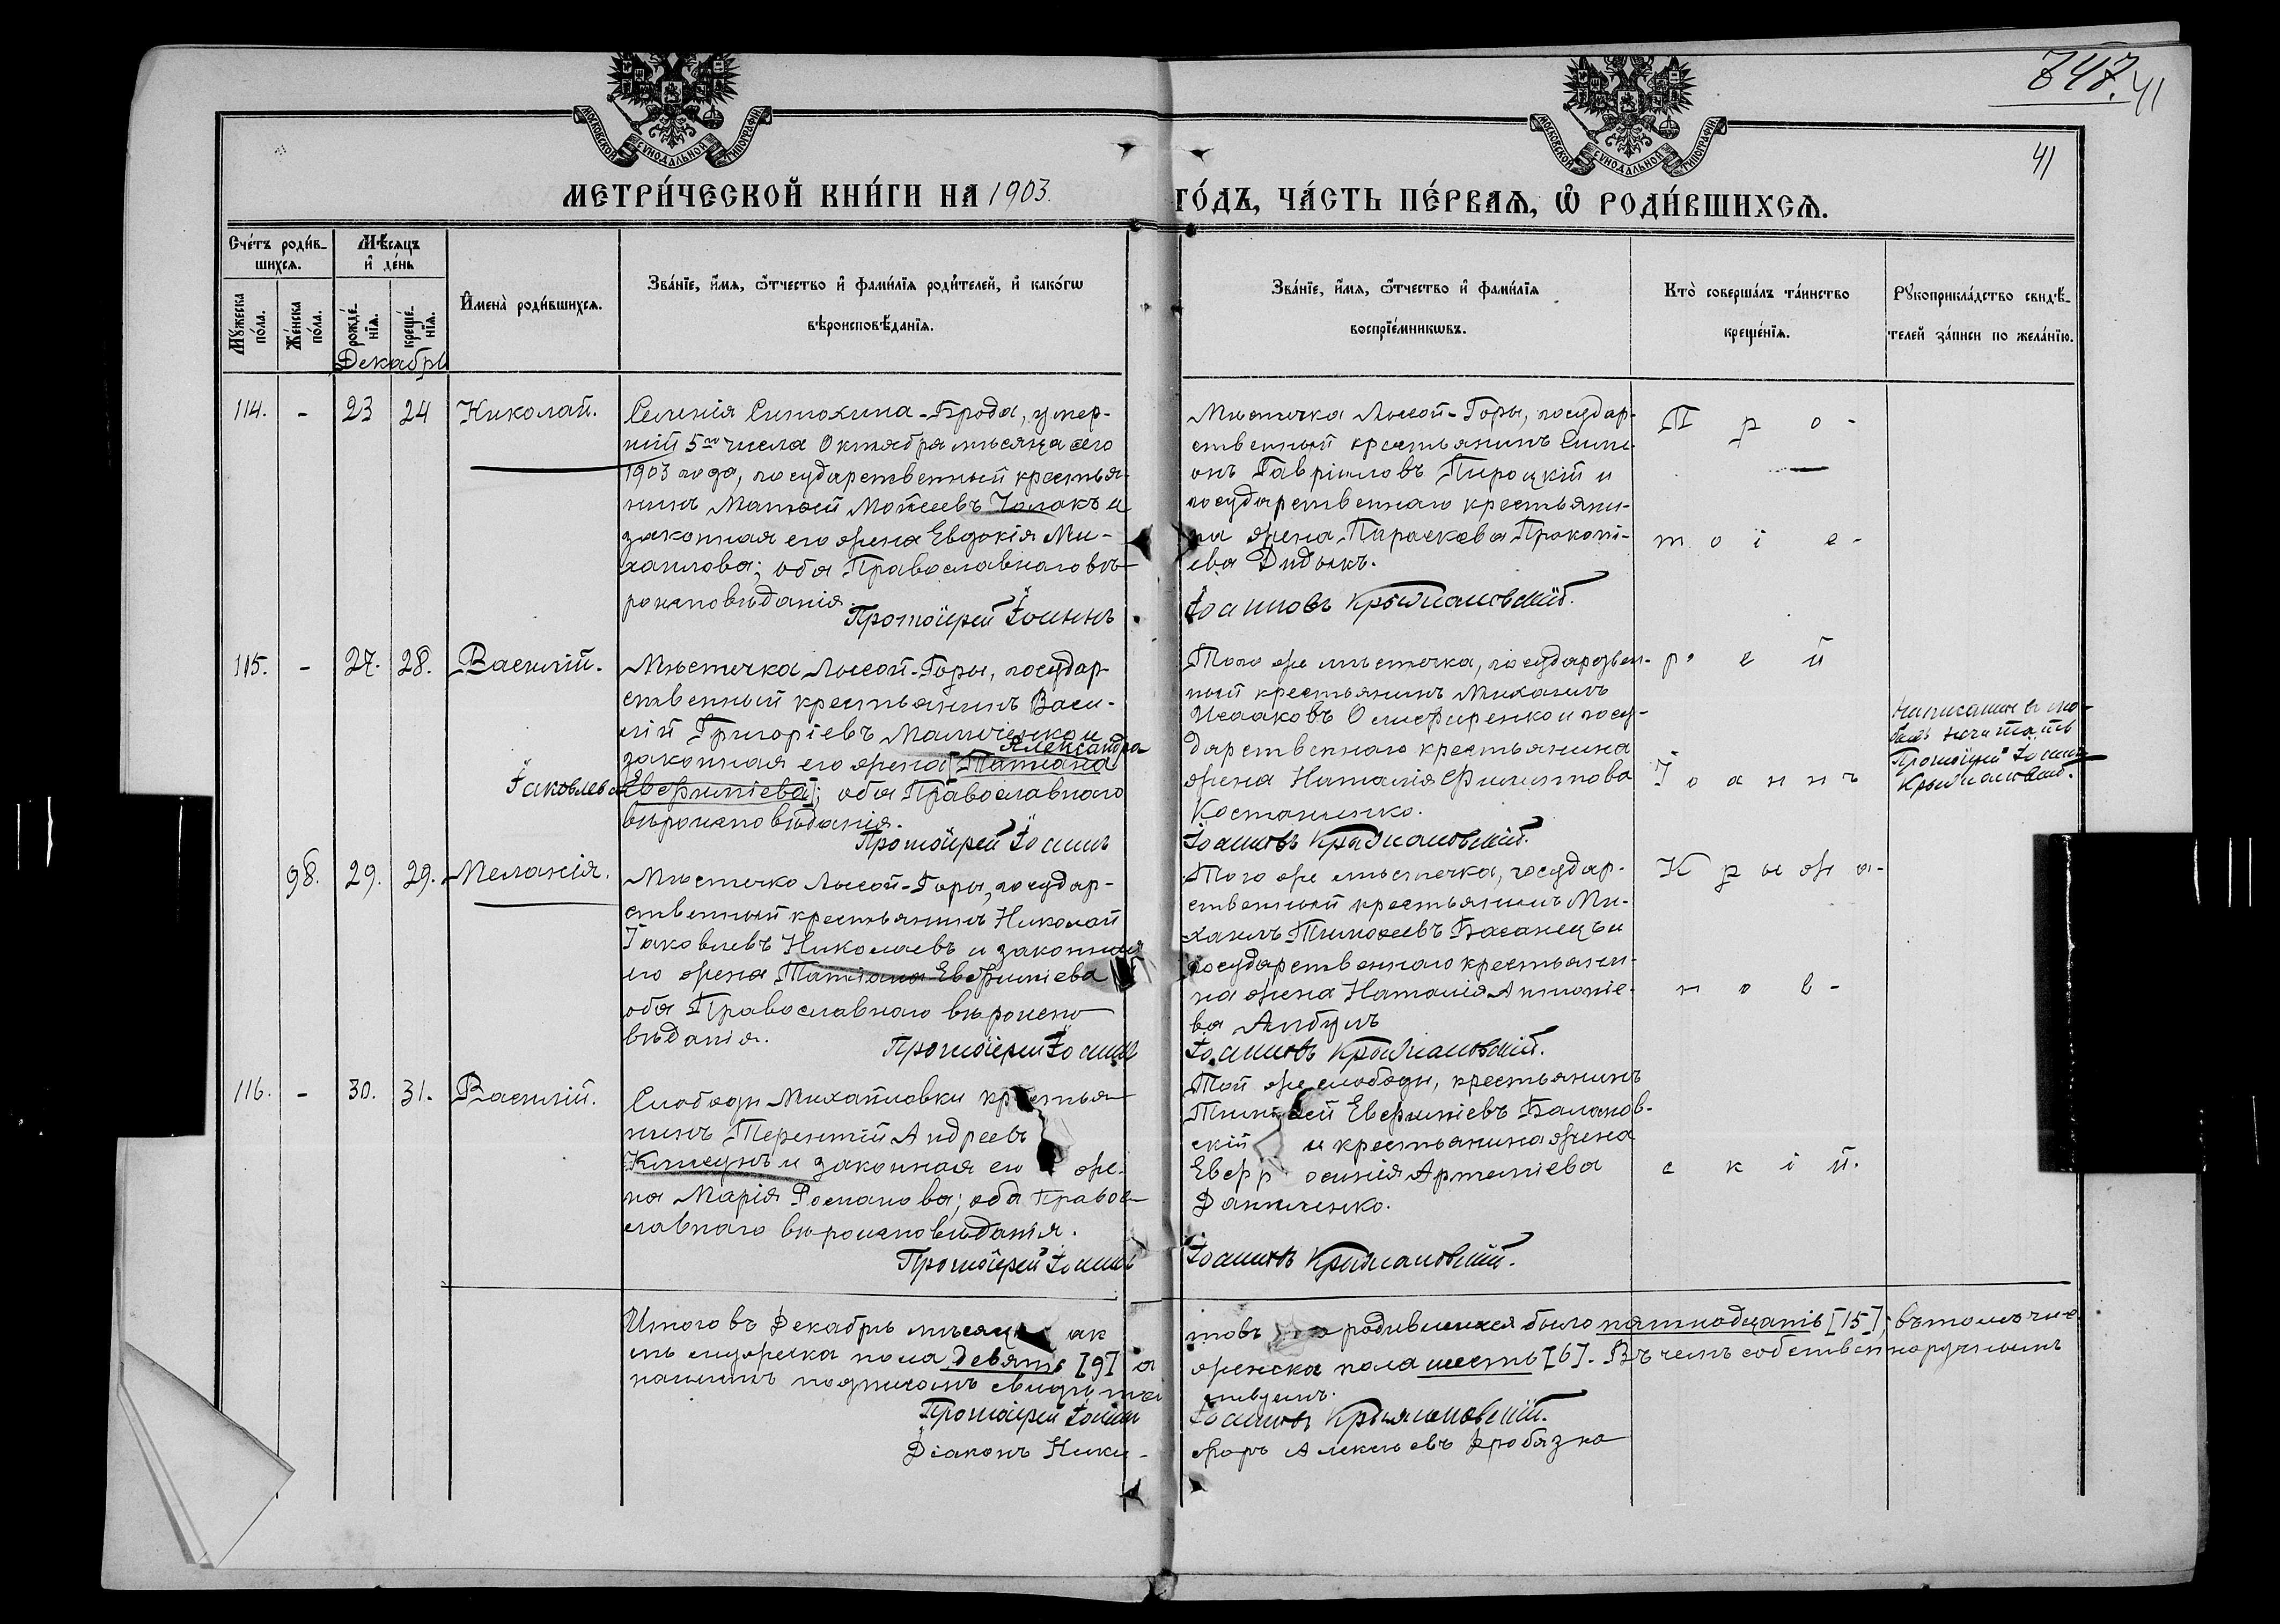 747. 41
41
МОСКОВСКОЙ СѴНОДАЛЬНОЙ ТИПОГРАФІИ
МОСКОВСКОЙ СѴНОДАЛЬНОЙ ТИПОГРАФІИ
МЕТРИ́ЧЕСКОЙ КНИ́ГИ НА 1903. ГО́ДЪ, ЧА́СТЬ ПЕ́РВАѦ, Ѡ РОДИ́ВШИХСѦ.
Сче́тъ роди́в-
шихсѧ.
Мѣ́сѧцъ
и҆ де́нь
Мꙋ́жеска по́ла.
Же́нска по́ла.
рожде́-
нїѧ.
креще́-
нїѧ.
Декабрь
И҆мена̀ роди́вшихсѧ.
Зва́нїе, и҆́мѧ, ѻ҆́тчество и҆ фами́лїѧ роди́телей, и҆ како́гѡ
вѣроисповѣ́данїѧ.
Зва́нїе, и҆́мѧ, ѻ҆́тчество и҆ фами́лїѧ
воспрїе́мникѡвъ.
Кто̀ соверша́лъ та́инство
креще́нїѧ.
Рꙋкоприкла́дство свидѣ́-
телей за́писи по жела́нїю.
114. - 23 24 Николай.
Селенія Синюхина-Брода, умер-
шій 5го числа Октября мѣсяца сего
1903 года, государственный крестья-
нинъ Матѳей Моѵсеевъ Чолакъ и
законная его жена Евдокія Ми-
хаилова; оба Православнаго вѣ-
роисповѣданія.
Протоіерей Іоаннъ
Мѣстечка Лысой-Горы, государ-
ственный крестьянинъ Симе-
онъ Гавріиловъ Пироцкій и
государственнаго крестьяни-
на жена Параскева Прокопі-
ева Дидыкъ.
Іоанновъ Крыжановскій.
П р о -
т о і е -
115. - 27. 28. Василій.
Мѣстечка Лысой-Горы, государ-
ственный крестьянинъ Васи-
лій Григоріевъ Мамченко и
Александра
законная его жена [Татіана
Іаковлева Евфиміева]; оба Православнаго
вѣроисповѣданія.
Протоіерей Іоаннъ
Того же мѣстечка, государствен-
ный крестьянинъ Михаилъ
Исааковъ и госу-
дарственнаго крестьянина
жена Наталія Филиппова
Іоанновъ Крыжановскій.
р е й
І о а н н ъ
Протоіерей Іоаннъ
Крыжановскій.
98. 29. 29. Меланія.
Мѣстечко Лысой-Горы, государ-
ственный крестьянинъ Николай
Іаковлевъ Николаевъ и законная
его жена Татіана Евфиміева
оба Православнаго вѣроиспо-
вѣданія.
Протоіерей Іоаннъ
Того же мѣстечка, государ-
ственный крестьянинъ Ми-
хаилъ Тимоѳеевъ Басанецъ и
государственнаго крестьяни-
на жена Наталія Антоніе-
ва
Іоанновъ Крыжановскій.
К р ы ж а -
н о в -
116. - 30. 31. Василій.
Слободы Михайловки крестья-
нинъ Терентій Андреевъ
и законная его же-
на Марія Романова; оба Право-
славнаго вѣроисповѣданія.
Протоіерей Іоаннъ
Той же слободы, крестьянинъ
Тимоѳей Евфиміевъ Баланов-
скій и крестьянина жена
Евфросинія Артеміева
Даниленко.
Іоанновъ Крыжановскій.
с к і й.
Итого въ Декабрѣ мѣсяцѣ ак
товъ о родившихся было пятнадцать [15]; въ томъ чис-
лѣ мужеска пола девять [9] а
женска пола шесть [6]. Въ чемъ собственноручнымъ
нашимъ подписомъ свидѣтель
ствуемъ.
Протоіерей Іоаннъ
Іоанновъ Крыжановскій.
Діаконъ Ники-
форъ Алексѣевъ Дробязко